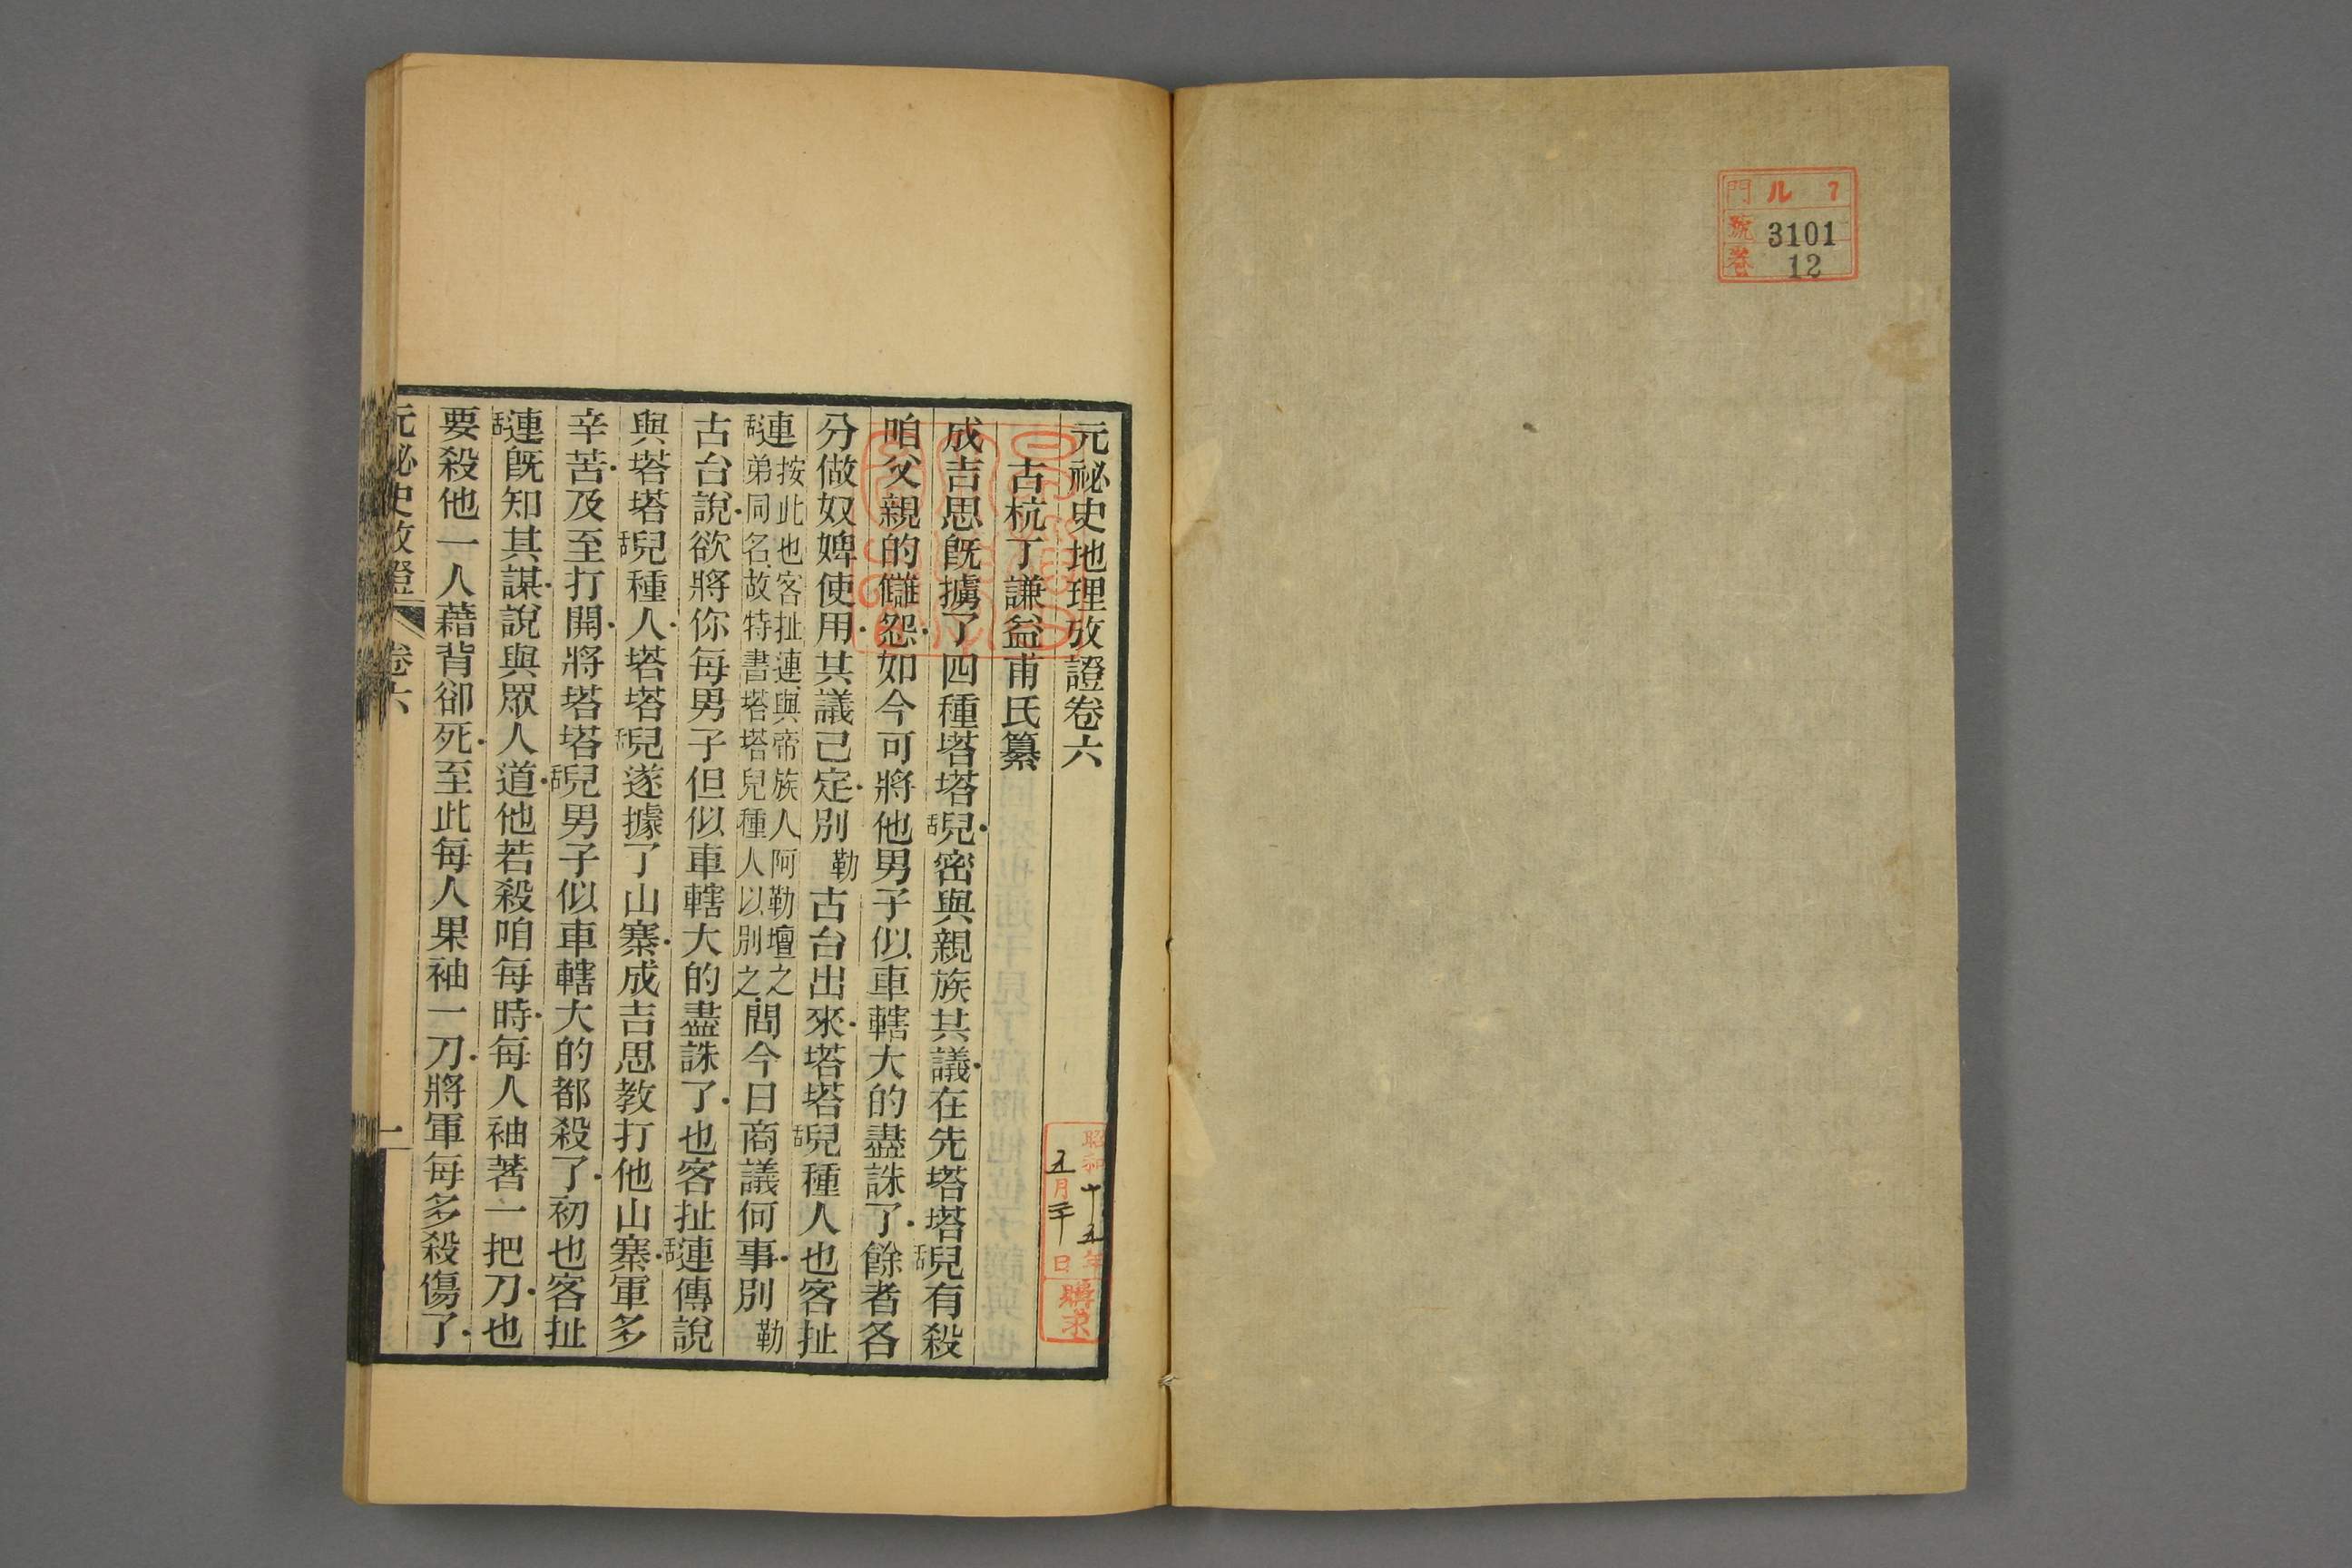 門 ル 7
號 3101
卷 12
元祕史地理攷證卷六
古杭丁謙益甫氏纂
成吉思旣擄了四種塔塔舌兒密與親族共議在先塔塔舌兒有殺
咱父親的讎怨如今可將他男子似車轄大的盡誅了餘者各
分做奴婢使用共議已定別勒古台出來塔塔舌兒種人也客扯
舌連按此也客扯連與帝族人阿勒壇之弟同名故特書塔塔兒種人以別之問今日商議何事別勒
古台說欲將你每男子但似車轄大的盡誅了也客扯舌連傳說
與塔塔舌兒種人塔塔舌兒遂據了山寨成吉思教打他山寨軍多
辛苦及至打開將塔塔舌兒男子似車轄大的都殺了初也客扯
舌連旣知其謀說與眾人道他若殺咱每時每人袖著一把刀也
要殺他一人藉背卻死至此每人果袖一刀將軍每多殺傷了
元祕史攷證 卷六 一
昭和十五年
五月三十日
購求